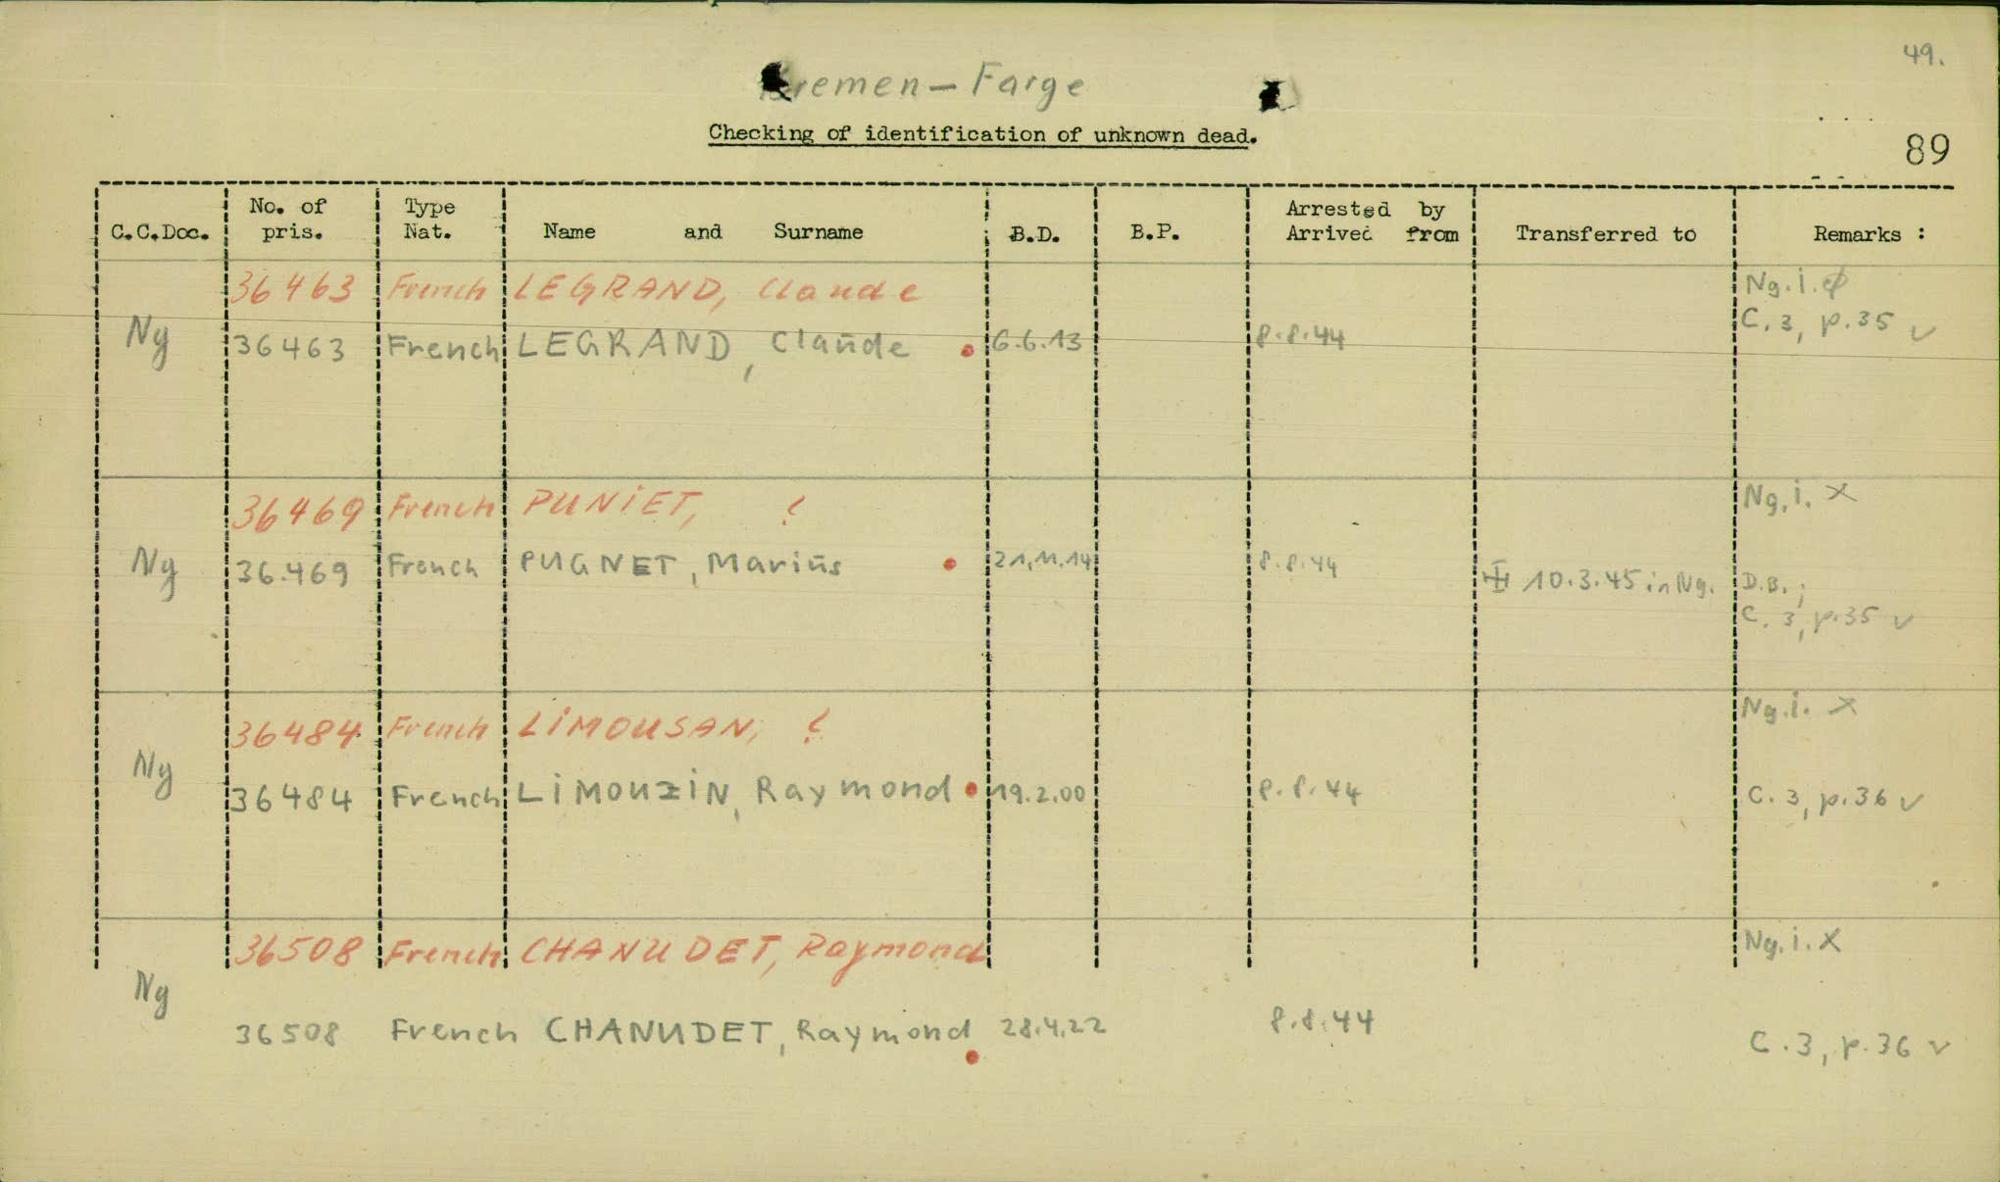 49.
Bremen - Farge
Checking of identification of unknown dead.
89
C.C.Doc. No. of pris. Type Nat. Name and Surname B.D. B.P. Arrested by Arrived from Transferred to Remarks :
36463 French LEGRAND, Claude Ng.i.
Ng 36463 French LEGRAND, Claude 6.6.13 8.8.44 C.3, p.35 ✓
36469 French PUNiET, ? Ng.i. X
Ng 36.469 French PUGNET, Marius 21.11.14 8.8.44 10.3.45 in Ng. D.B.;
C.3, p.35 ✓
36484 French LiMOUSAN, ? Ng.i. X
Ng 36484 French LiMOUZiN, Raymond 19.2.00 8.8.44 C.3, p.36 ✓
36508 French CHANUDET, Raymond Ng.i. X
Ng 36508 French CHANUDET, Raymond 28.4.22 8.8.44 C.3, p.36 ✓